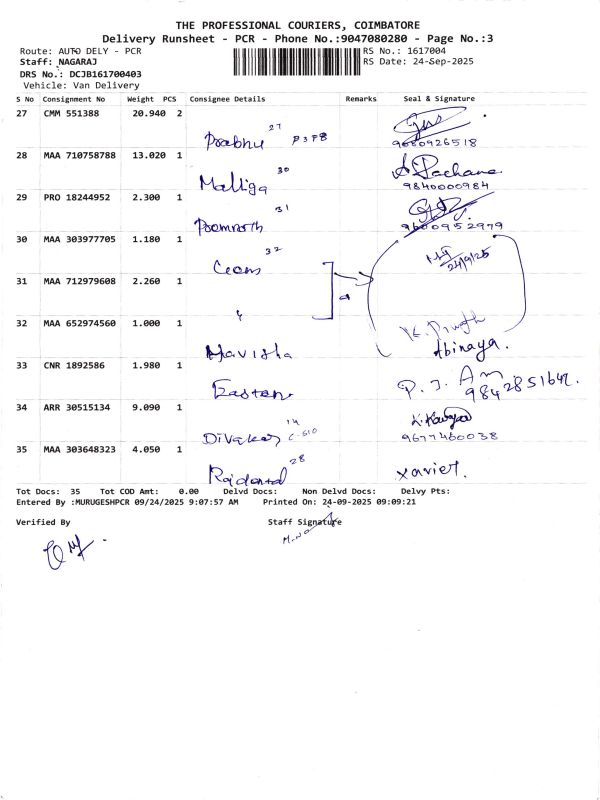 THE PROFESSIONAL COURIERS, COIMBATORE
Delivery Runsheet - PCR - Phone No.:9047080280 - Page No.:3
Route: AUTO DELY - PCR RS No.: 1617004
Staff: NAGARAJ RS Date: 24-Sep-2025
DRS No.: DCJB161700403
Vehicle: Van Delivery
S No Consignment No Weight PCS Consignee Details Remarks Seal & Signature
27 CMM 551388 20.940 2
27
Prabhu P3PB
9680926518
28 MAA 710758788 13.020 1
30
Malliga
9840000984
29 PRO 18244952 2.300 1
31
9600952979
30 MAA 303977705 1.180 1
32
Ceans
24/9/25
31 MAA 712979608 2.260 1
"
32 MAA 652974560 1.000 1
Havisha
Abinaya.
33 CNR 1892586 1.980 1
Easten
34 ARR 30515134 9.090 1
14
Divakar C-510
9677460038
35 MAA 303648323 4.050 1
28
xavier.
Tot Docs: 35 Tot COD Amt: 0.00 Delvd Docs: Non Delvd Docs: Delvy Pts:
Entered By :MURUGESHPCR 09/24/2025 9:07:57 AM Printed On: 24-09-2025 09:09:21
Verified By Staff Signature